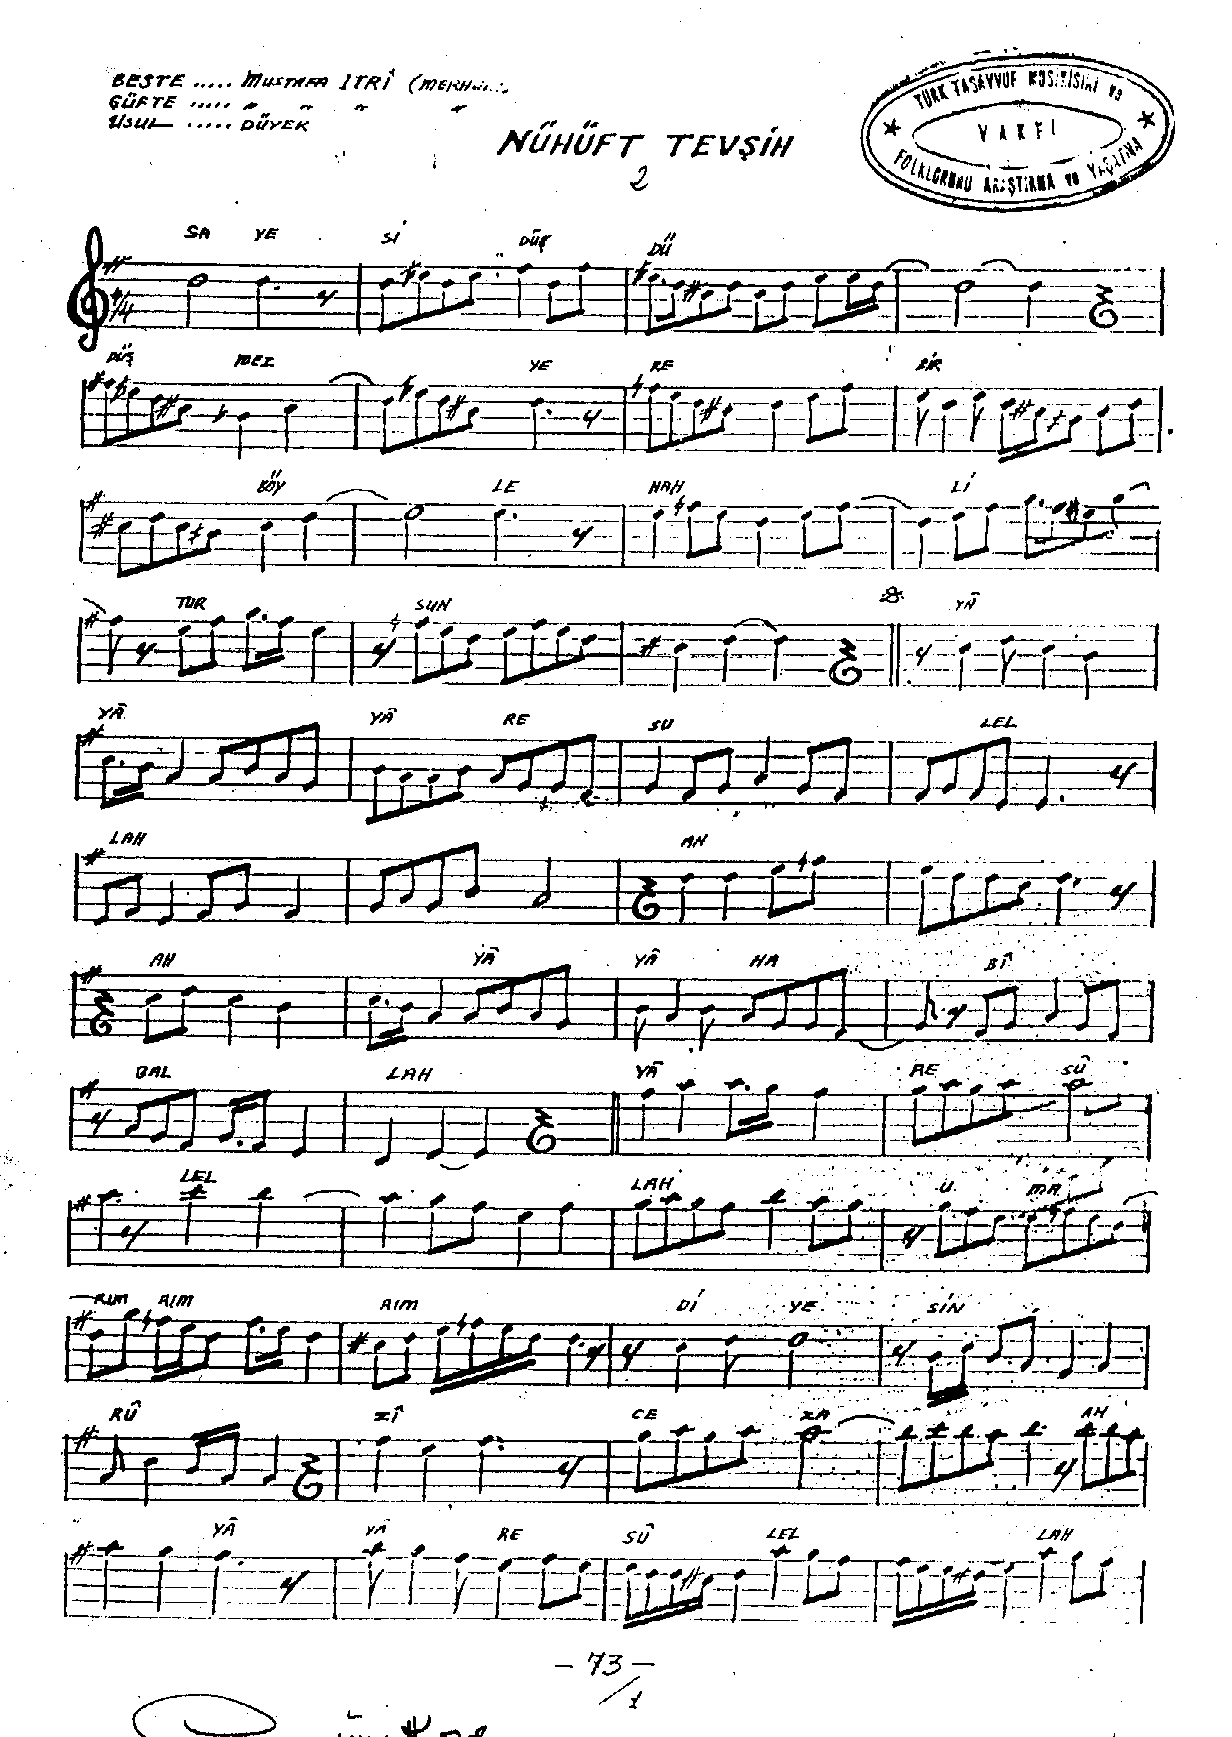 BESTE ..... MUSTAFA ITRÎ
GÜFTE ..... " " " "
USUL ..... DÜYEK
NÜHÜFT TEVŞİH
2
TÜRK TASAVVUF MUSIKISINI VE
VAKFI
FOLKLORUNU ARAŞTIRMA VE YAŞATMA
SA YE Sİ DÜŞ DÜ
DÜŞ MEZ YE RE BİR
BÖY LE MAH Lİ
TUR SUN YÂ
YÂ YÂ RE SU LEL
LAH AH
AH YÂ YÂ HA BÎ
BAL LAH YÂ RE SÛ
LEL LAH U MA
RIM RIM RIM Dİ YE SİN
RÛ ZÎ CE ZA AH
YÂ YÂ RE SÛ LEL LAH
- 73 -
/ 1